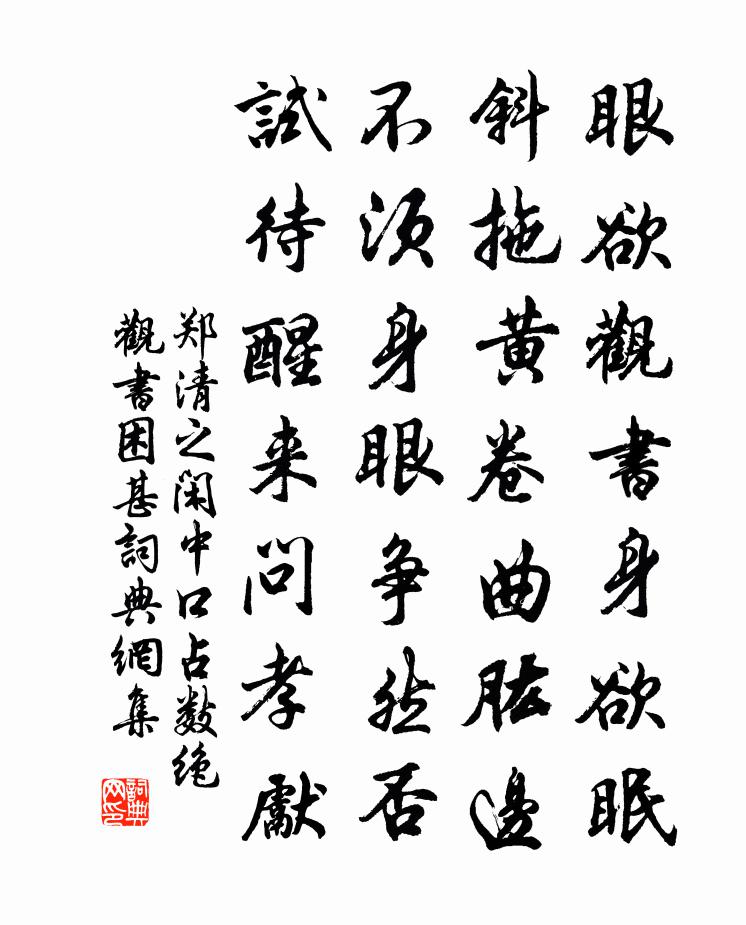 眼欲觀書身欲眠
斜拖黄卷曲肱邊
不須身眼争然否
試待醒来問孝獻
郑清之闲中口占数绝
觀書困甚詞典網集
詞典网印